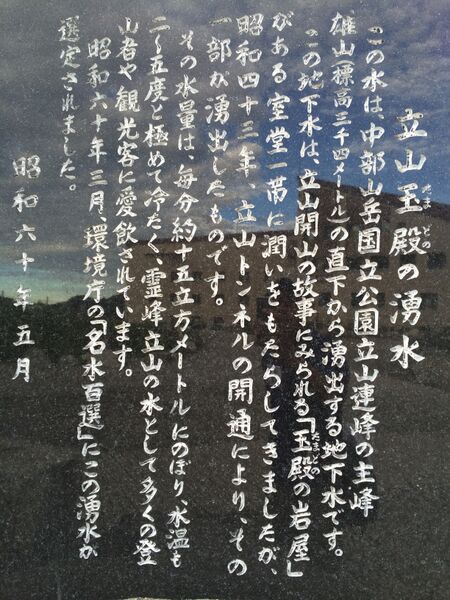 立山玉殿の湧水
この水は、中部山岳国立公園立山連峰の主峰
雄山(標高三千四メートル)の直下から湧出する地下水です。
この地下水は、立山開山の故事にみられる「玉殿の岩屋」
がある室堂一帯に潤いをもたらしてきましたが、
昭和四十三年、立山トンネルの開通により、その
一部が湧出したものです。
その水量は、毎分約十五立方メートルにのぼり、水温も
二〜五度と極めて冷たく、霊峰立山の水として多くの登
山者や観光客に愛飲されています。
昭和六十年三月、環境庁の「名水百選」にこの湧水が
選定されました。
昭和六十年五月